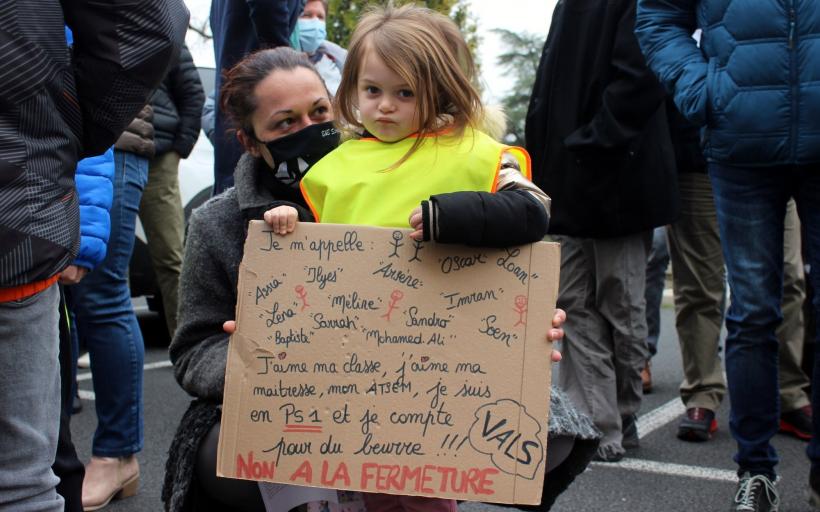 Je m'appelle :
"Oscar" "Loan"
"Assia" "Ilyes" "Arsène"
"Lena" "Méline" "Imran"
"Baptiste" "Sarrah" "Sandro" "Soen"
"Mohamed Ali"
J'aime ma classe, j'aime ma
maitresse, mon ATSEM, je suis
en PS1 et je compte
pour du beurre !!!
VALS
NON A LA FERMETURE